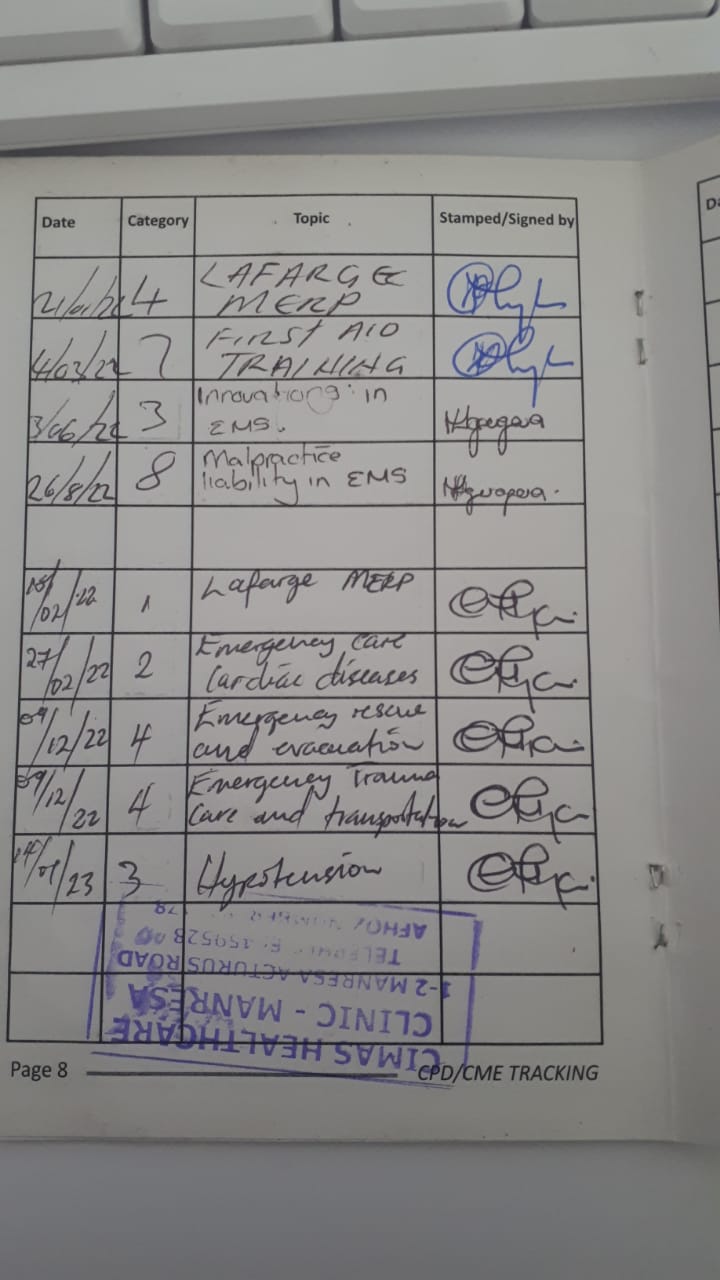 Date Category Topic Stamped/Signed by
4 LAFARGE
MERP
4/03/22 7 FIRST AID
TRAINING
3/06/22 3 Innovations in
EMS.
26/8/22 8 Malpractice
liability in EMS
02/22 1 Lafarge MERP
27/02/22 2 Emergency care
Cardiac diseases
09/12/22 4 Emergency rescue
and evacuation
09/12/22 4 Emergency Trauma
Care and transportation
14/01/23 3 Hypotension
CIMAS HEALTHCARE
CLINIC - MANRESA
1-2 MANRESA ACTURUS ROAD
Page 8 CPD/CME TRACKING